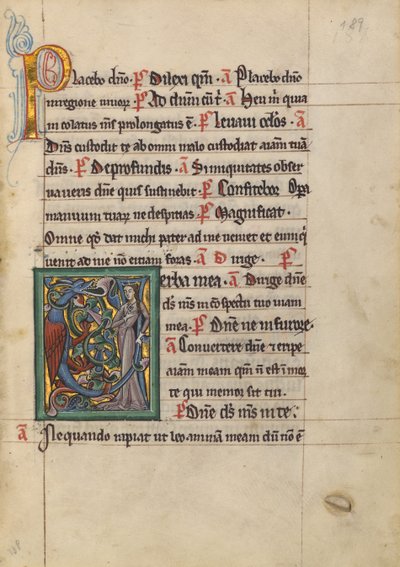 189
Placebo dño. Ps Dilexi qm̄. A Placebo dño
in regione uiuoꝝ. Ps Ad dñum cū t̄. A Heu m̄ quia
incolatus m̄s prolongatus ē. Ps Leuaui oc̄los. A
Dn̄s custodit te ab omni malo custodiat aīam tuā
dn̄s. Ps De profundis. A Si iniquitates obser
uaueris dn̄e quis sustinebit. Ps Confitebor Opa
manuum tuaꝝ ne despitias. Ps Magnificat.
Omne qd̄ dat michi pater ad me ueniet et eum q̇
uenit ad me nō eitiam foras. A Dirige. Ps
Verba mea. A Dirige dn̄e
ds̄ m̄s in ɔspectu tuo uiam
mea. Ps Dn̄e ne in furore.
A Conuertere dn̄e et eripe
aīam meam qm̄ n̄ est ī mor
te qui memor sit tui.
Ps Dn̄e ds̄ m̄s in te.
A Ne quando rapiat ut leo animā meam dū nō ē